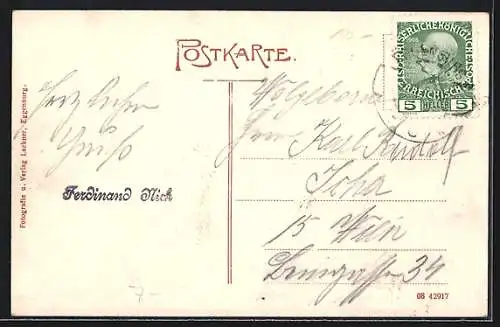 POSTKARTE.
KAISERLICHE KÖNIGLICHE
POST
1908
5 HELLER 5
Herzlichen
Gruß
Ferdinand Nick
Fotografie u. Verlag Lechner, Eggenburg.
Wohlgeboren
Herrn Karl Rudolf
Ioha
15 Wien
34
08 42917
10-
7-